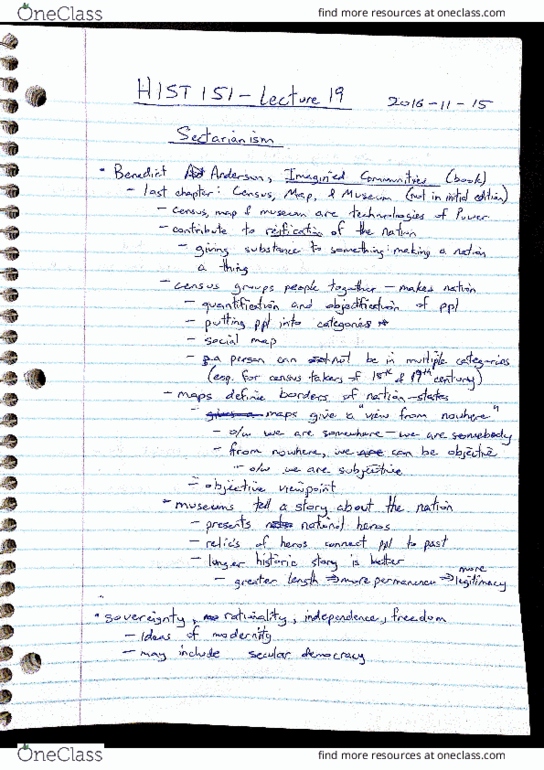 OneClass
find more resources at oneclass.com
HIST 151 - Lecture 19
2016-11-15
Sectarianism
• Benedict Anderson, Imagined Communities (book)
- last chapter: Census, Map, & Museum (not in initial edition)
- census, map & museum are technologies of Power
- contribute to reification of the nation
- giving substance to something: making a nation
a thing
- census groups people together - makes nation
- quantification and objectification of ppl
- putting ppl into categories
- social map
- a person can not be in multiple categories
(esp. for census takers of 18th & 19th century)
- maps define borders of nation-states
- maps give a "view from nowhere"
- o/w we are somewhere - we are somebody
- from nowhere, we can be objective
- o/w we are subjective
- objective viewpoint
- museums tell a story about the nation
- presents national heros
- relics of heros connect ppl to past
- longer historic story is better
- greater length ⇒ more permanence ⇒ more legitimacy
• sovereignty, rationality, independence, freedom
- Ideas of modernity
- may include secular democracy
OneClass
find more resources at oneclass.com